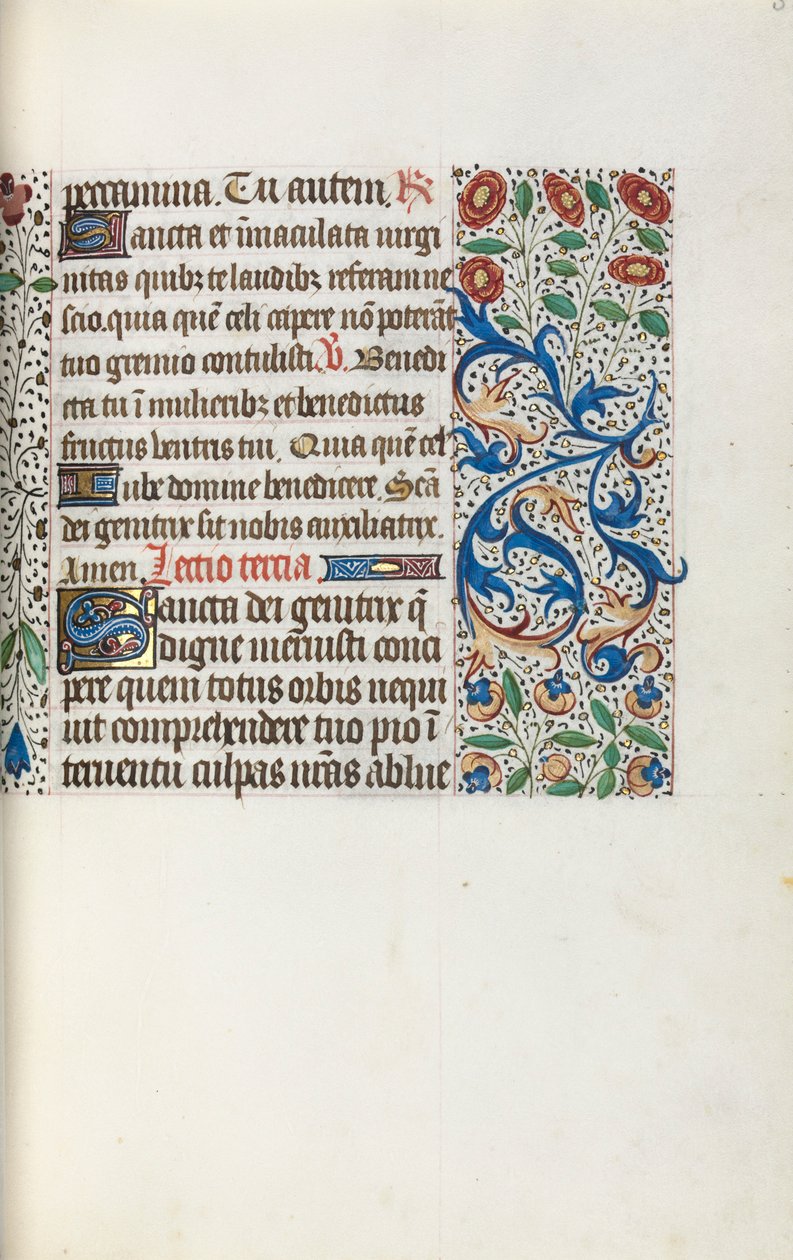 peccamina. Tu autem. R
Sancta et ĩmaculata uirgi
nitas quibꝫ te laudibꝫ referam ne
scio. quia quẽ celi capere nõ poterãt
tuo gremio contulisti. V. Benedi
cta tu ĩ mulieribꝫ et benedictus
fructus ventris tui. Quia quẽ cel'
Iube domine benedicere. Scã
dei genitrix sit nobis auxiliatrix.
Amen. Lectio tercia.
Sancta dei genitrix q̃
digne meruisti conci
pere quem totus orbis nequi
uit comprehendere tuo pio ĩ
teruentu culpas nr̃as ablue